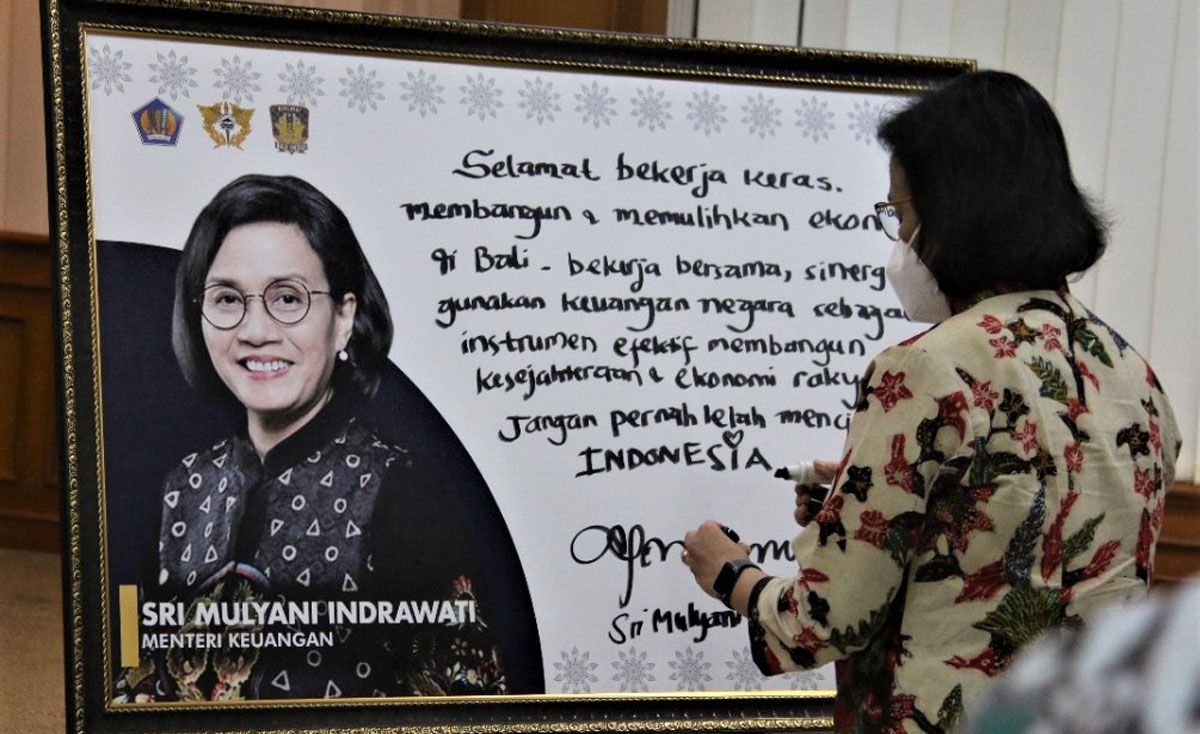 Selamat bekerja keras.
membangun & memulihkan
di Bali - bekerja bersama,
gunakan keuangan negara
instrumen efektif membangun
kesejahteraan & ekonomi
Jangan pernah lelah
INDONESIA
Sri Mulyani
SRI MULYANI INDRAWATI
MENTERI KEUANGAN